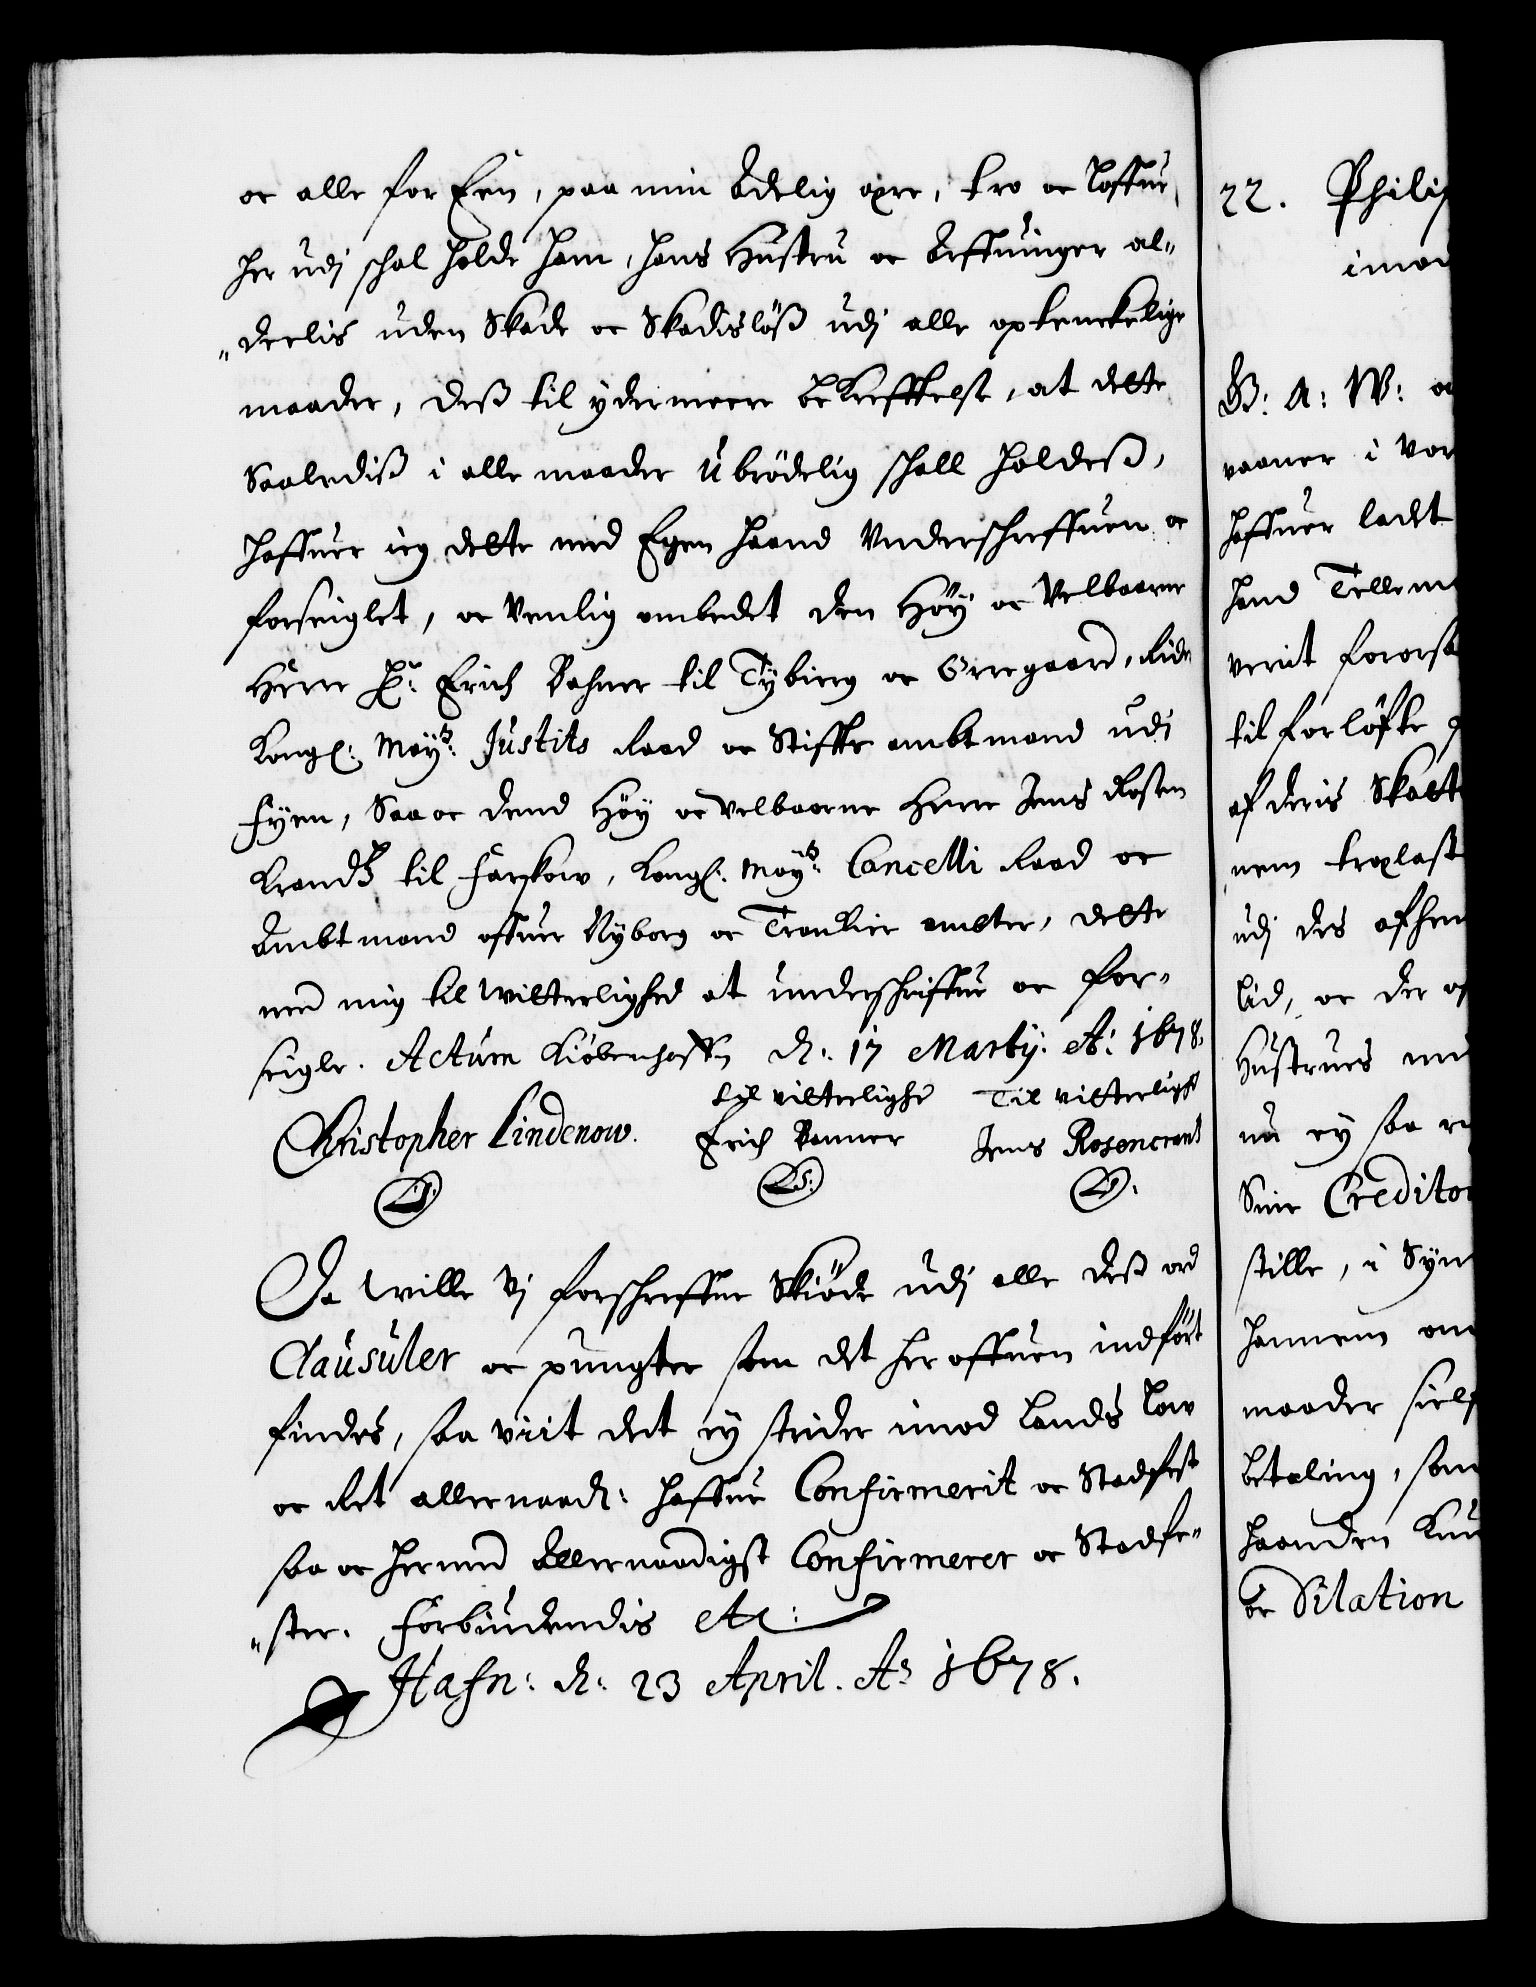 oc alle for Een, paa min Adelig ære, tro oc Loffue,
her udj schal holde ham, hans Hustru oc Arffuinger al„
„deelis uden Skade oc Skadislöß udj alle optenckelige
maader, deß til ydermeere bekreffttelse, at dette
Saalediß i alle maader Ubrödelig schall holdeß,
haffuer ieg dette med Egen haand Underschreffuen oc
forseiglet, oc Venlig ombedet den Höy oc Velbaarne
Herre Hr: Erich Bahner til Tÿbierg oc Orregaard, Ride
Kongl: Mayts: Justits Raad oc Stiffts ambtmand udi
Fyen, Saa oc dend Höy oc Velbaarne Herre Jens Rosen
Krandtz til Farskow, Kongl: Mayts: Cancelli Raad oc
Ambtmand offuer Nyborg oc Trankier ambter, dette
med mig til Witterlighed at underschriffue oc for„
seigle. Actum Kiöbenhaffn d: 17 Martij: Ao: 1678.
til vitterlighed Til vitterlighd
Christopher Lindenow. Erich Banner Jens Rosencrant
L.S. L.S. L.S.
Da Wille Vj forschreffne Skiöde udj alle deß ord
Clausuler oc pungter som det her offuen indfört
findes, saa viit det ey strider imod Lands Low
oc Ret allernaadl: haffue Confirmerit oc Stadfest
saa oc hermed Allernaadigst Confirmerer oc Stadfe„
„ster. Forbiudendis etc:
Hafn: d: 23 April. Ao 1678.
22. Philip
imod
G: A: W: at
vaaner i Vor
haffuer ladet
hand Tellem
verit foraarsa
til forlöfte
af deris Skatt
nem
udj des afhen
tid, oc der
Hustrues
nu ey saa
Sine Creditor
stille, i Syn
hannem
maader
betaling, som
haanden
oc Dilation